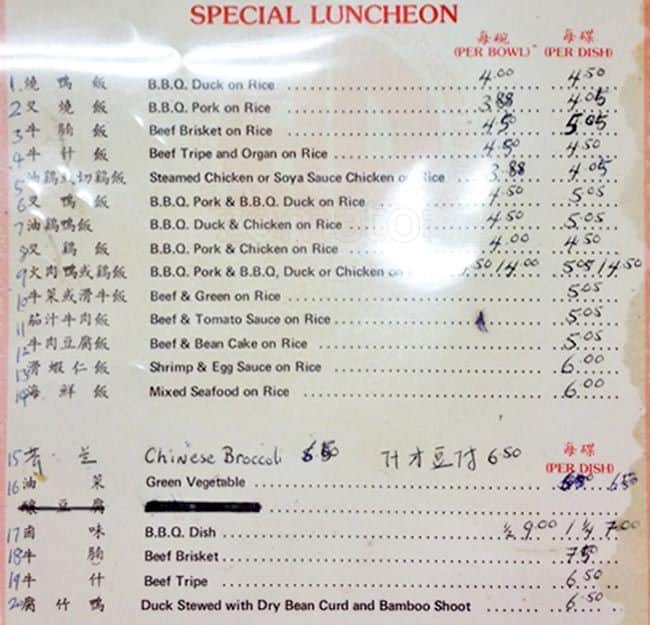 SPECIAL LUNCHEON
每碗 每碟
(PER BOWL) (PER DISH)
1 燒鴨飯 B.B.Q. Duck on Rice 4.00 4.50
2 叉燒飯 B.B.Q. Pork on Rice 3.88 4.05
3 牛腩飯 Beef Brisket on Rice 4.50 5.05
4 牛什飯 Beef Tripe and Organ on Rice 4.50 4.50
5 油鷄或切鷄飯 Steamed Chicken or Soya Sauce Chicken on Rice 3.88 4.05
6 叉鴨飯 B.B.Q. Pork & B.B.Q. Duck on Rice 4.50 5.05
7 油鷄鴨飯 B.B.Q. Duck & Chicken on Rice 4.50 5.05
8 叉鷄飯 B.B.Q. Pork & Chicken on Rice 4.00 4.50
9 火肉鴨或鷄飯 B.B.Q. Pork & B.B.Q, Duck or Chicken on .50/4.00 5.05/4.50
10 牛菜或滑牛飯 Beef & Green on Rice 5.05
11 茄汁牛肉飯 Beef & Tomato Sauce on Rice 5.05
12 牛肉豆腐飯 Beef & Bean Cake on Rice 5.05
13 滑蝦仁飯 Shrimp & Egg Sauce on Rice 6.00
14 海鮮飯 Mixed Seafood on Rice 6.00
15 芥兰 Chinese Broccoli 6.50 什才豆付 6.50 每碟
(PER DISH)
16 油菜 Green Vegetable 6.50
釀豆腐
17 鹵味 B.B.Q. Dish ½ 9.00 / ¼ 7.00
18 牛腩 Beef Brisket 7.50
19 牛什 Beef Tripe 6.50
20 腐竹鴨 Duck Stewed with Dry Bean Curd and Bamboo Shoot 6.50